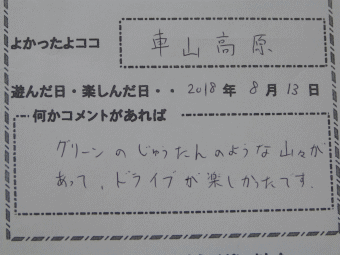 よかったよココ 車山高原
遊んだ日・楽しんだ日・・ 2018 年 8 月 13 日
何かコメントがあれば
グリーンのじゅうたんのような山々が
あって、ドライブが楽しかたです.